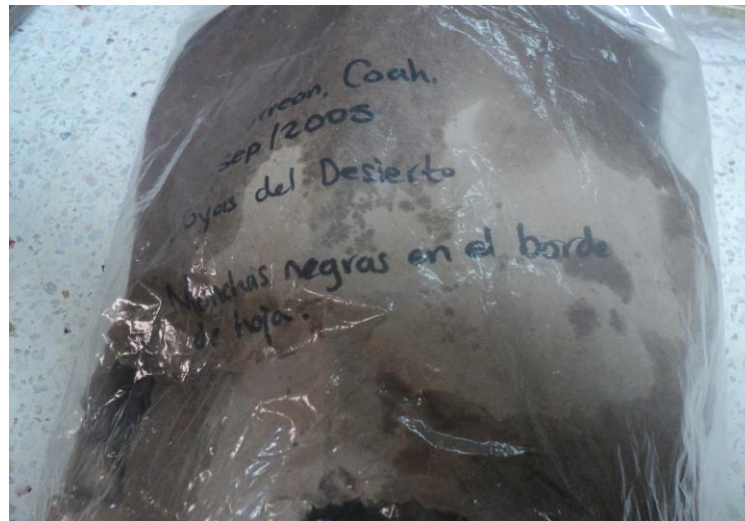 Coah.
sep/2005
del Desierto
Manchas negras en el borde
de hoja.